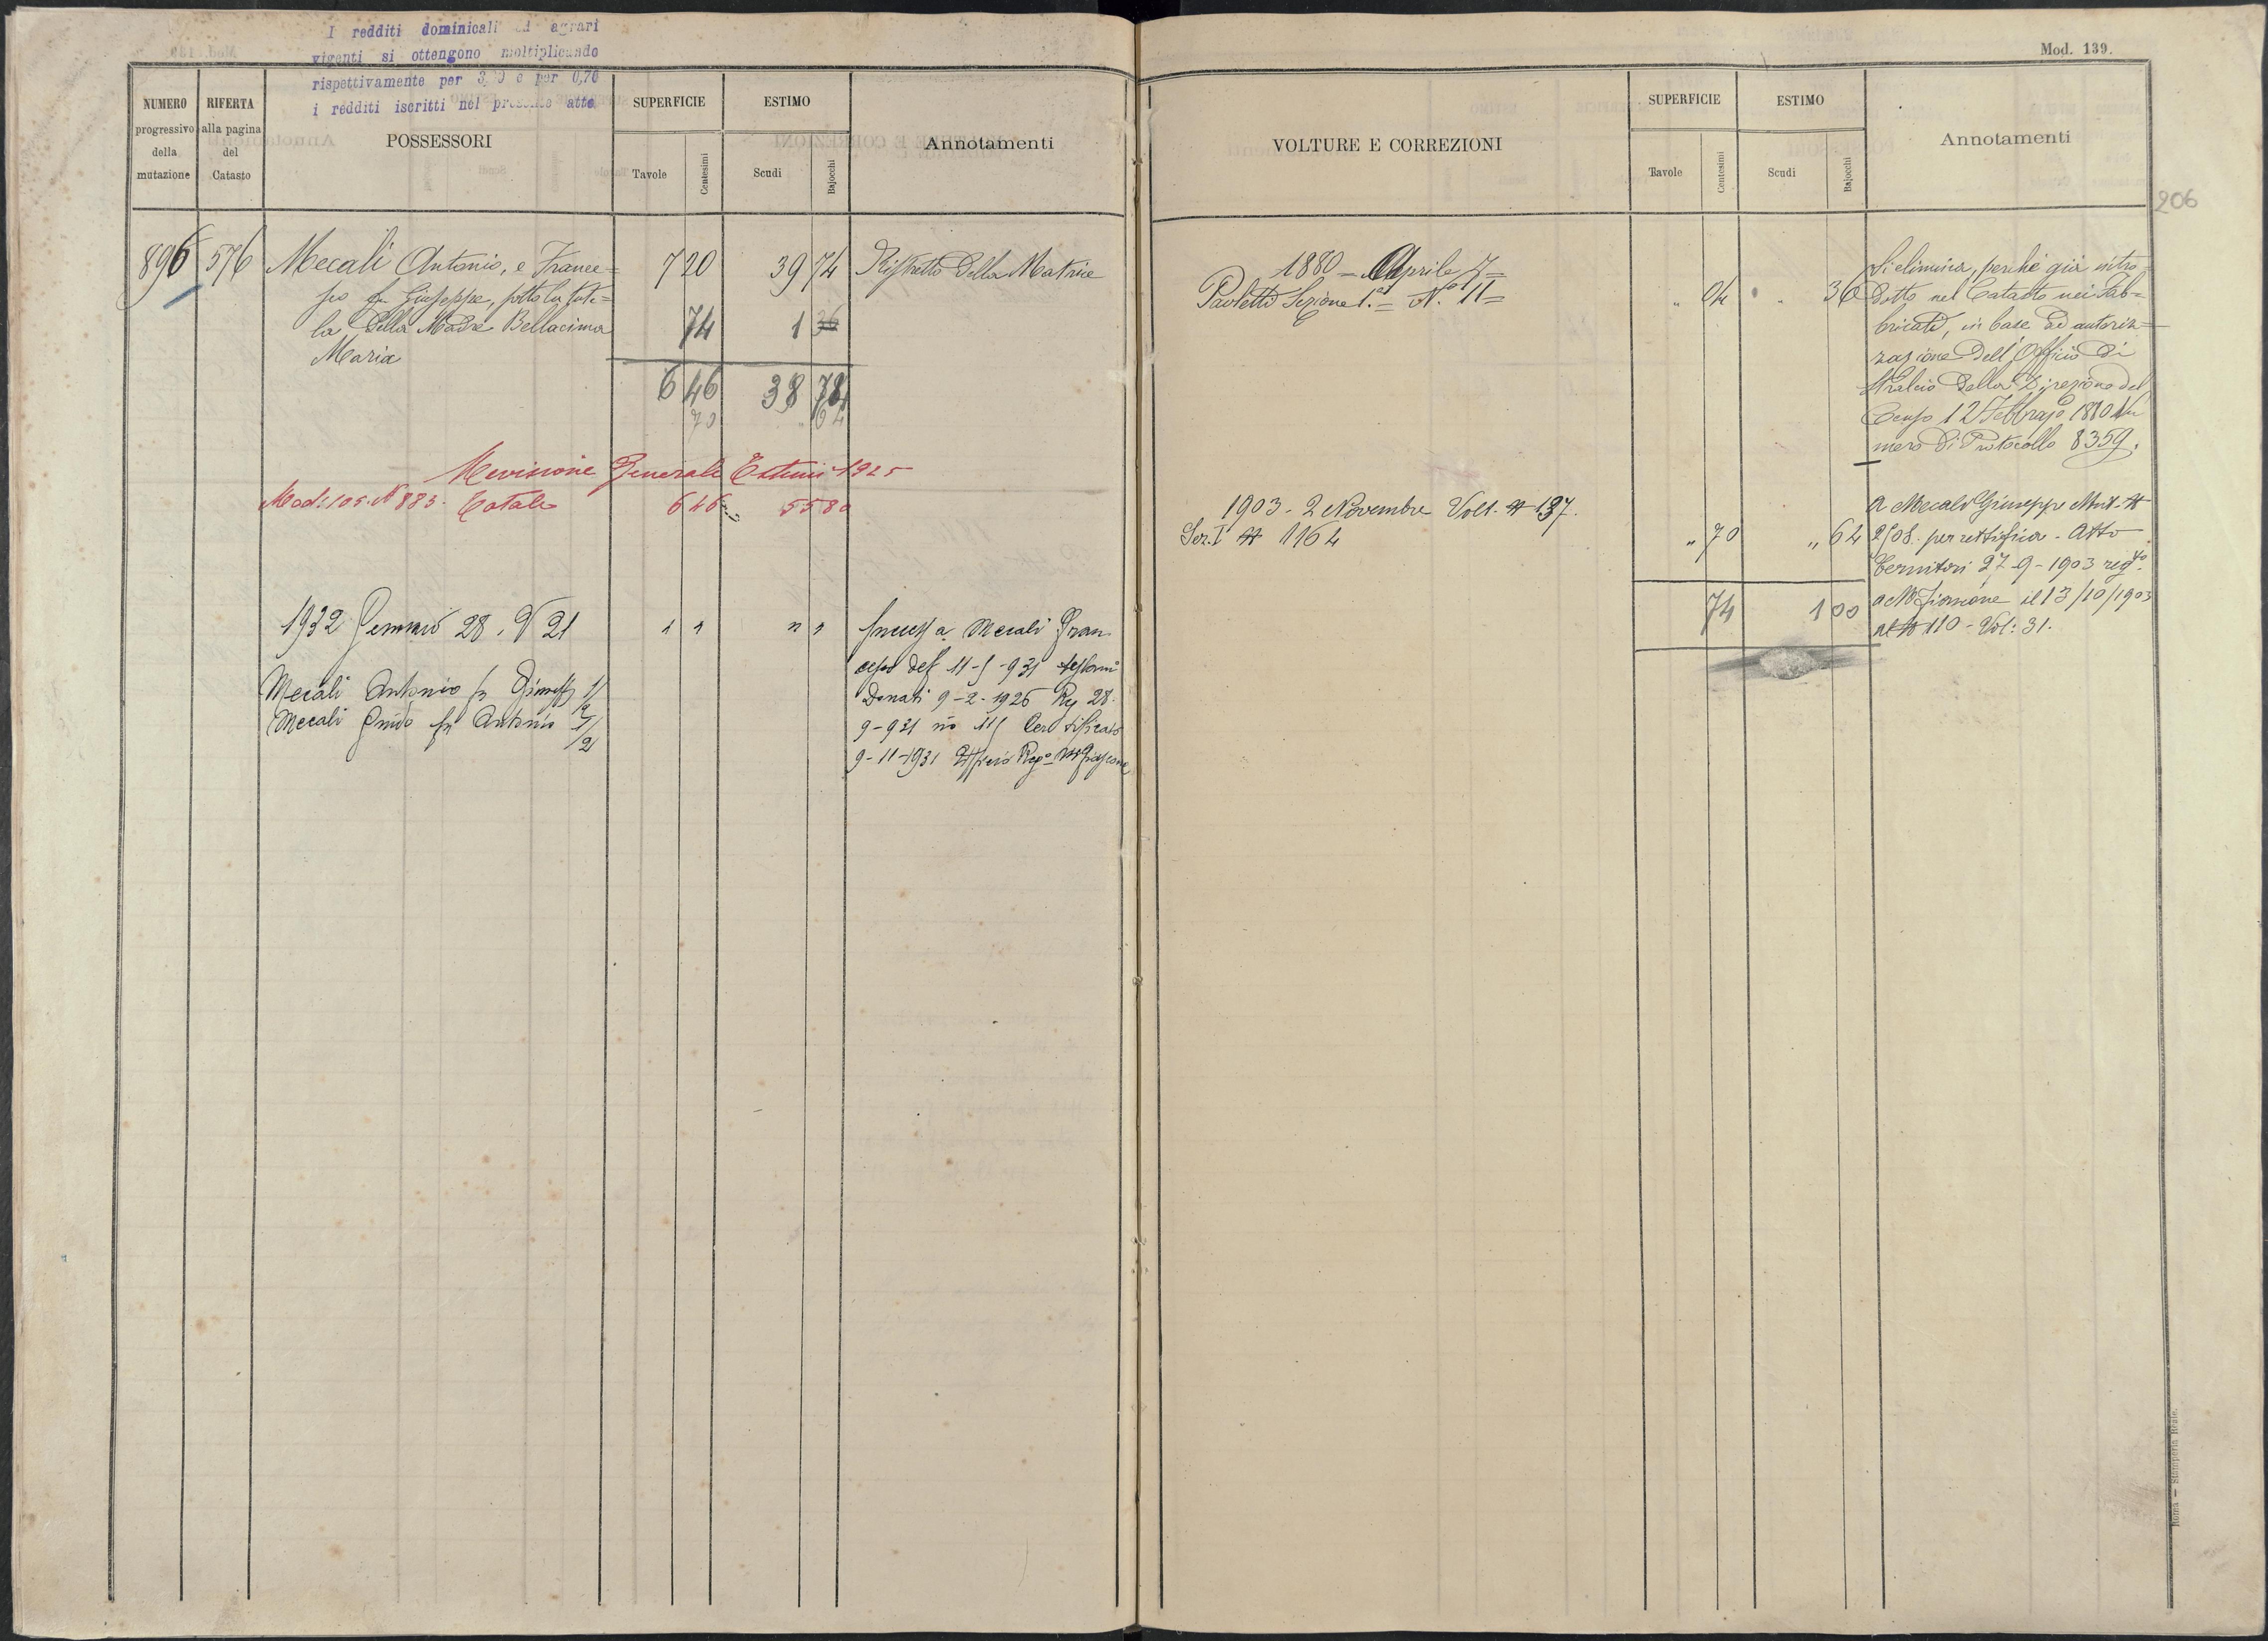 I redditi dominicali ed agrari
vigenti si ottengono moltiplicando
rispettivamente per 3,20 e per 0,70
i redditi iscritti nel presente atto
NUMERO
progressivo
della
mutazione
RIFERTA
alla pagina
del
Catasto
POSSESSORI
SUPERFICIE
Tavole
Centesimi
ESTIMO
Scudi
Bajocchi
Annotamenti
896 576 Mecali Antonio, e France= 7 20 39 74 Ristretto della Matrice
sco fu Giuseppe, sotto la tute=
la della Madre Bellacima 74 1 36
Maria
6 46 38 74
70 64
Revisione Generale Estimi 1925
Mod: 105. N 883. Totale 6 46 55 80
1932 Gennaio 28. N 21 " " " " Success a Mecali Fran
cesco def 11-5-931 testam
Mecali Antonio fu Giusepp 1/2 Donati 9-2-1926 Reg 28.
Mecali Guido fu Antonio 1/2 9-931 no 115 Certificato
9-11-1931 Ufficio Rego Mfiascone
Mod. 139.
VOLTURE E CORREZIONI
SUPERFICIE
Tavole
Centesimi
ESTIMO
Scudi
Bajocchi
Annotamenti
206
1880 = Aprile 7 =
Paoletti Sezione 1.a = N.o 11 = " 04 " 36
Si elimina, perchè già intro
dotto nel Catasto nei Fab=
bricati, in base ad autoriz=
zazione dell'Officio di
Stralcio della Direzione del
Censo 12 Febbrajo 1880 Nu
mero di Protocollo 8359.
1903 - 2 Novembre Volt. N 137.
Sez. I N 1164 " 70 " 64
74 1 00
a Mecali Giuseppe Mut. N
per rettifica - Atto
27-9-1903 regto
a Mfiascone il 13/10/1903
al N 110 - Vol: 31.
Roma — Stamperia Reale.